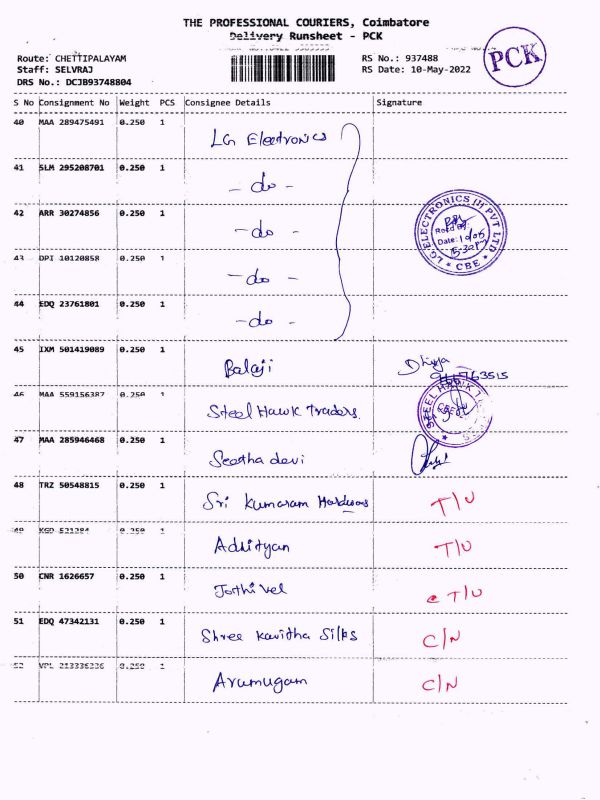 THE PROFESSIONAL COURIERS, Coimbatore
Delivery Runsheet - PCK
PCK
Route: CHETTIPALAYAM
RS No.: 937488
Staff: SELVRAJ
RS Date: 10-May-2022
DRS No.: DCJB93748804
S No Consignment No Weight PCS Consignee Details Signature
40 MAA 289475491 0.250 1 LG Electronics
41 SLM 295208701 0.250 1 - do -
42 ARR 30274856 0.250 1 - do -
LG ELECTRONICS (I) PVT LTD
Date:
5:30pm
* CBE *
43 DPI 10120858 0.250 1 - do -
44 EDQ 23761801 0.250 1 - do -
45 IXM 501419089 0.250 1 Balaji
46 MAA 559156387 0.250 1 Steel Hawk Traders
STEEL HAWK
47 MAA 285946468 0.250 1 Seetha devi
48 TRZ 50548815 0.250 1 Sri Kumaram T/U
49 0.250 1 Adhityan T/U
50 CNR 1626657 0.250 1 Jothivel T/U
51 EDQ 47342131 0.250 1 Shree Kavitha Silks C/N
52 VPL 0.250 1 Arumugam C/N